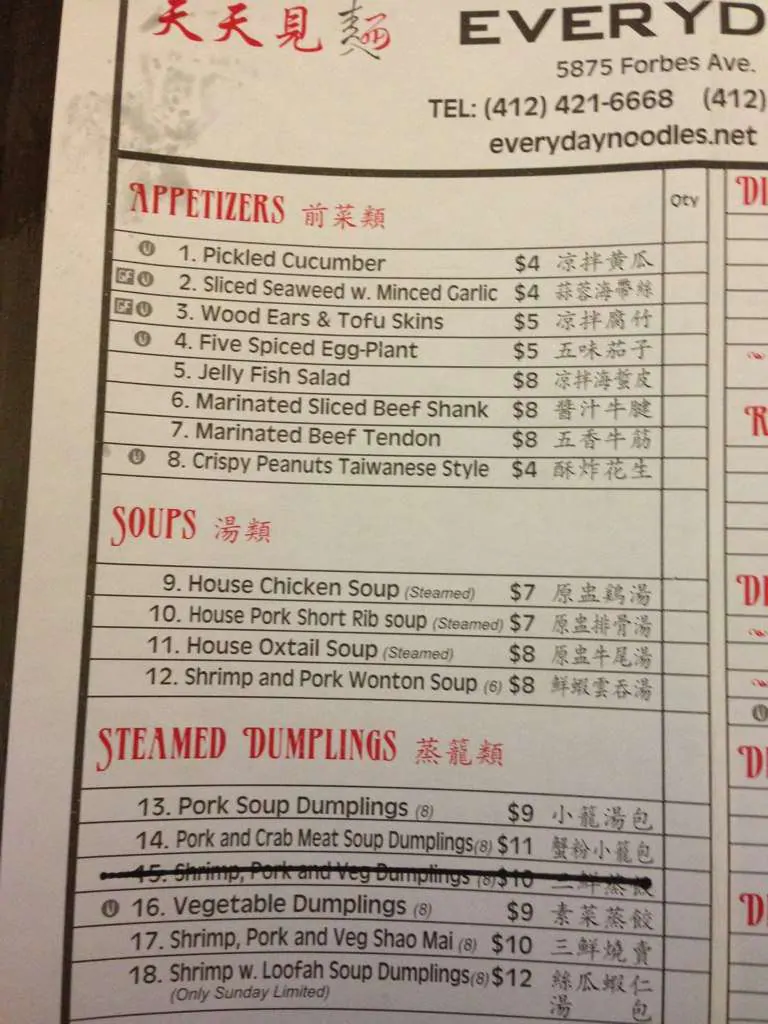 天天見麵 EVERYD
5875 Forbes Ave.
TEL: (412) 421-6668 (412)
everydaynoodles.net
APPETIZERS 前菜類 Qty
U 1. Pickled Cucumber $4 凉拌黄瓜
GF U 2. Sliced Seaweed w. Minced Garlic $4 蒜蓉海帶絲
GF U 3. Wood Ears & Tofu Skins $5 凉拌腐竹
U 4. Five Spiced Egg-Plant $5 五味茄子
5. Jelly Fish Salad $8 凉拌海蜇皮
6. Marinated Sliced Beef Shank $8 醬汁牛腱
7. Marinated Beef Tendon $8 五香牛筋
U 8. Crispy Peanuts Taiwanese Style $4 酥炸花生
SOUPS 湯類
9. House Chicken Soup (Steamed) $7 原盅鷄湯
10. House Pork Short Rib soup (Steamed) $7 原盅排骨湯
11. House Oxtail Soup (Steamed) $8 原盅牛尾湯
12. Shrimp and Pork Wonton Soup (6) $8 鮮蝦雲吞湯
STEAMED DUMPLINGS 蒸籠類
13. Pork Soup Dumplings (8) $9 小籠湯包
14. Pork and Crab Meat Soup Dumplings (8) $11 蟹粉小籠包
15. Shrimp, Pork and Veg Dumplings (8) $10 三鮮蒸餃
U 16. Vegetable Dumplings (8) $9 素菜蒸餃
17. Shrimp, Pork and Veg Shao Mai (8) $10 三鮮燒賣
18. Shrimp w. Loofah Soup Dumplings (8) $12 絲瓜蝦仁
(Only Sunday Limited) 湯包